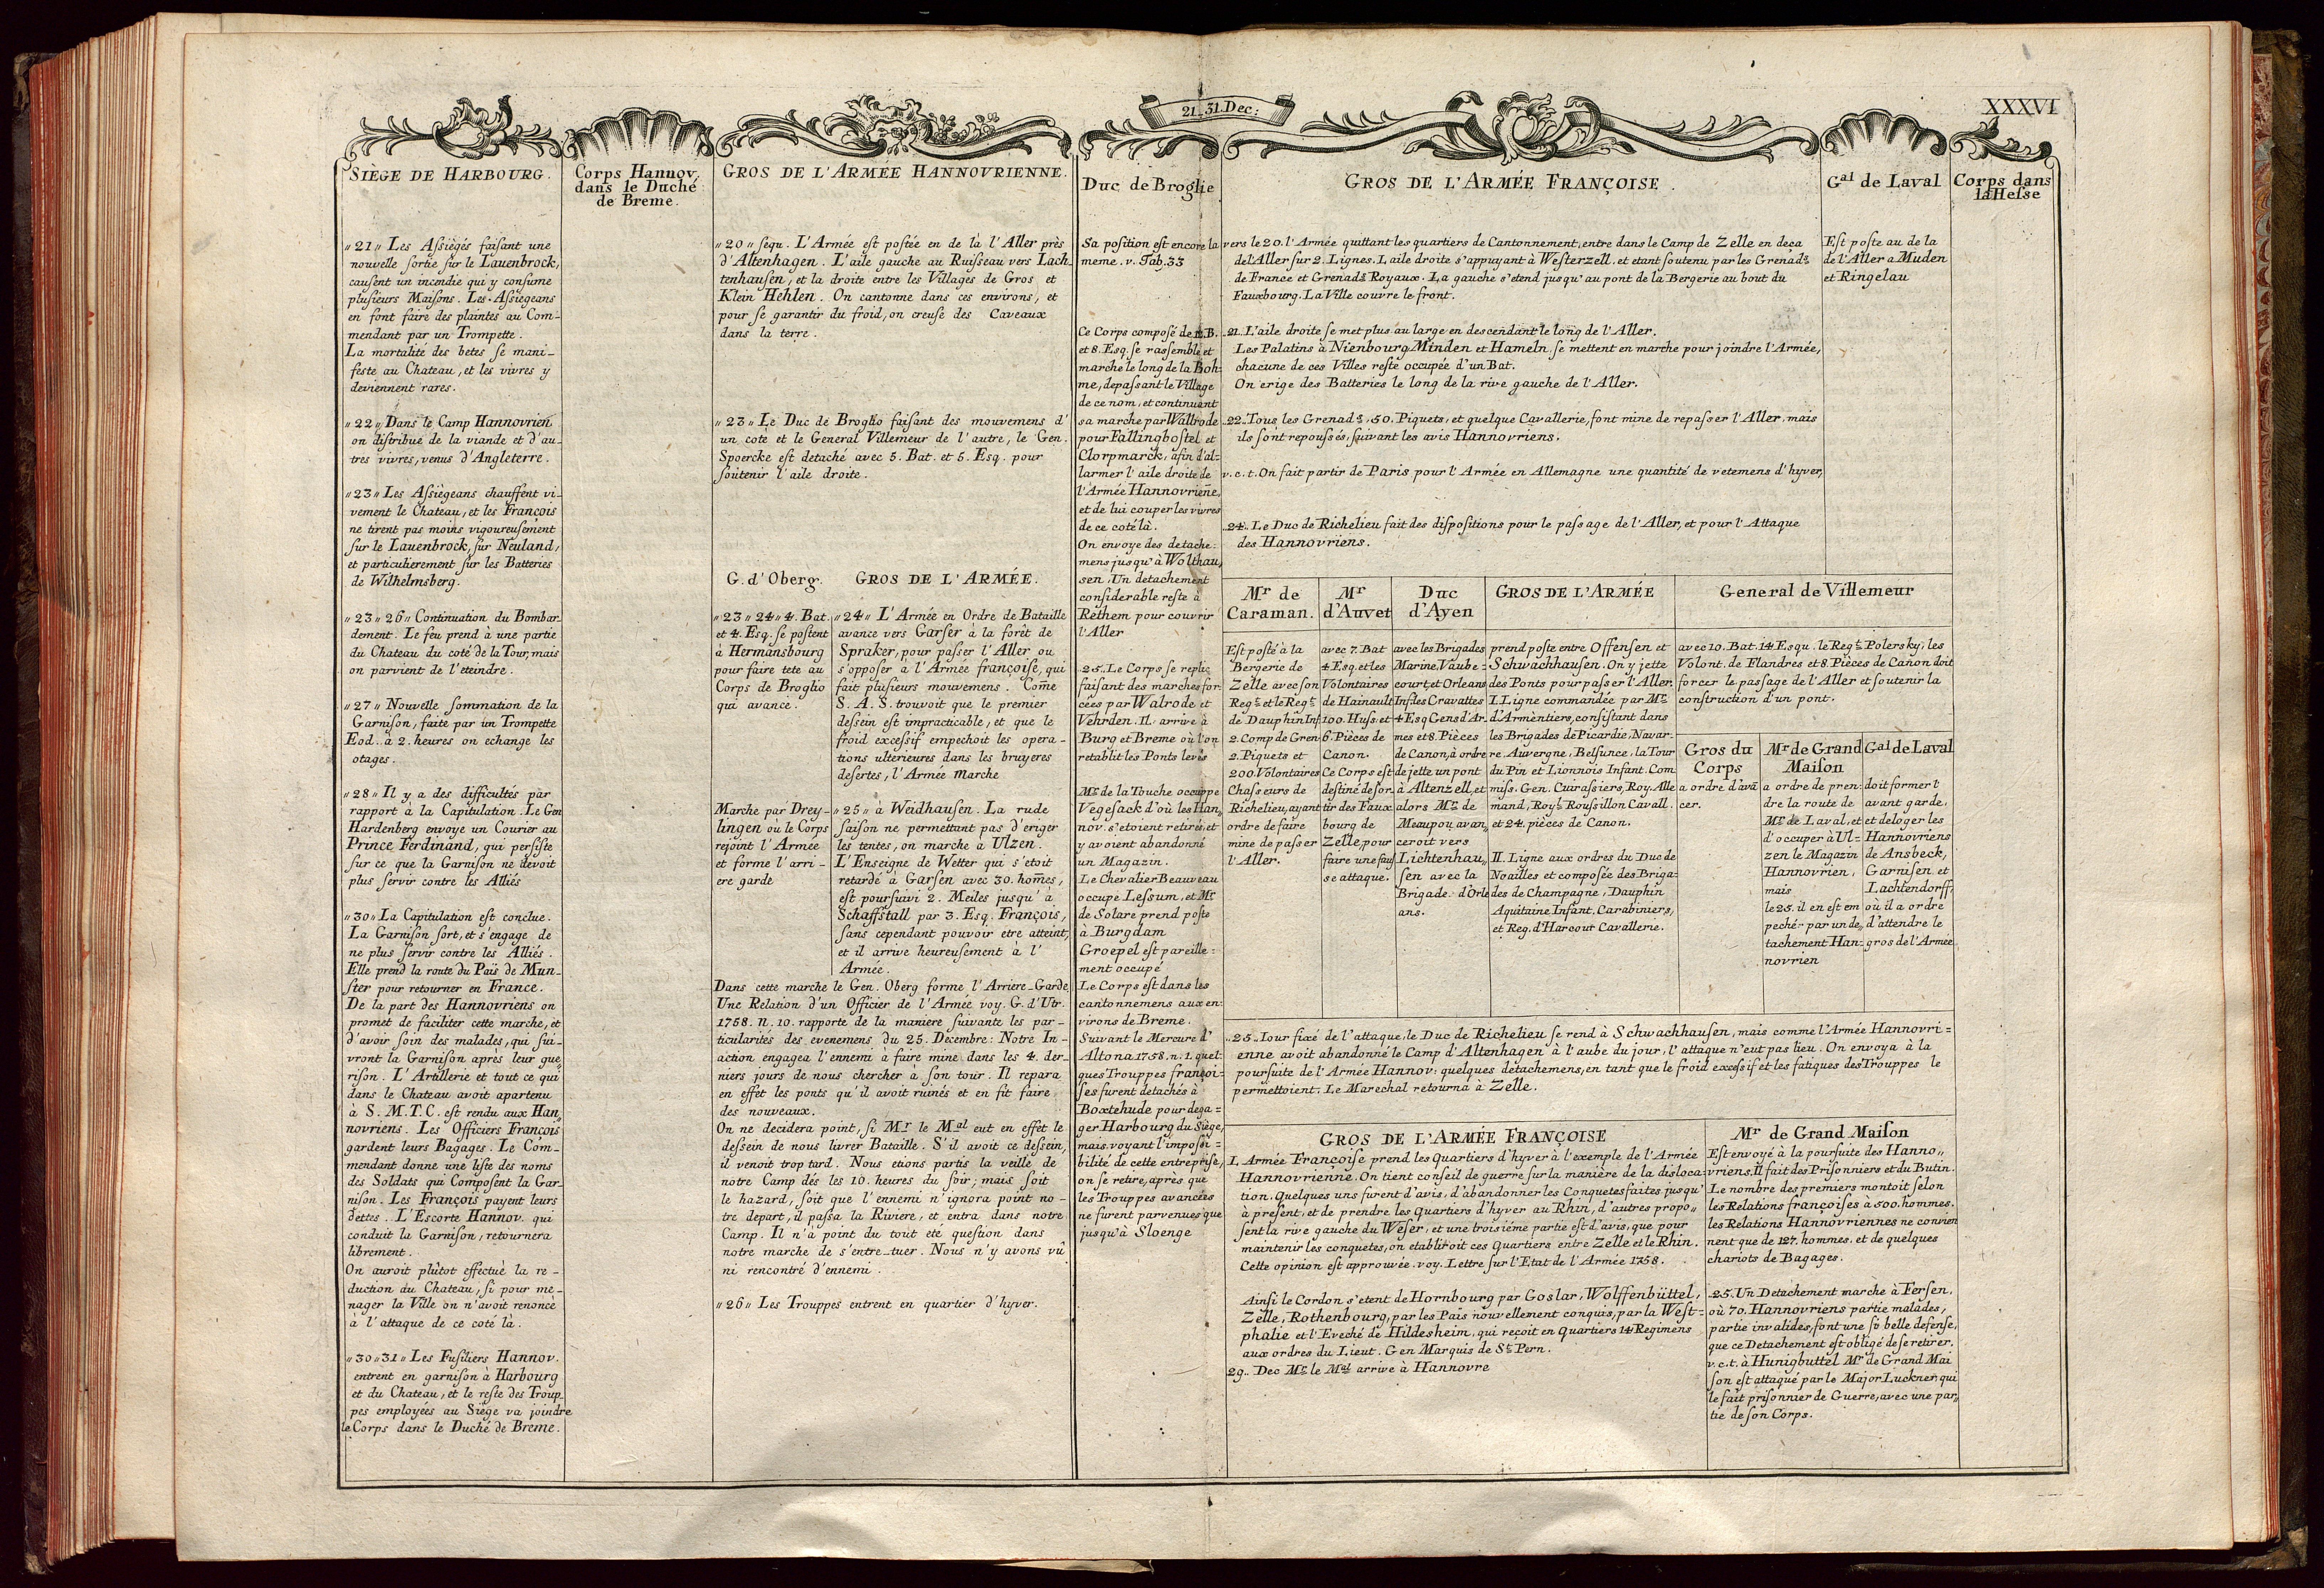 21..31. Dec:
XXXVI
SIÈGE DE HARBOURG.
„21„ Les Aſsiégés faiſant une
nouvelle ſortie ſur le Lauenbrock,
cauſent un incendie qui y conſume
pluſieurs Maiſons. Les Aſsiégeans
en font faire des plaintes au Com-
mendant par un Trompette.
La mortalité des betes ſe mani-
feste au Chateau, et les vivres y
deviennent rares.
„22„ Dans le Camp Hannovrien
on diſtribue de la viande et d'au-
tres vivres, venus d'Angleterre.
„23„ Les Aſsiègeans chauffent vi-
vement le Chateau, et les François
ne tirent pas moins vigoureuſement
ſur le Lauenbrock, ſur Neuland,
et particulierement ſur les Batteries
de Wilhelmsberg.
„23„26„ Continuation du Bombar-
dement. Le feu prend à une partie
du Chateau du coté de la Tour, mais
on parvient de l'eteindre.
„27„ Nouvelle ſommation de la
Garniſon, faite par un Trompette
Eod. à 2. heures on echange les
otages.
„28„ Il y a des difficultés par
rapport à la Capitulation. Le Gen
Hardenberg envoye un Courier au
Prince Ferdinand, qui perſiſte
ſur ce que la Garniſon ne devoit
plus ſervir contre les Alliés
„30„ La Capitulation eſt conclue.
La Garniſon ſort, et s'engage de
ne plus ſervir contre les Alliés.
Elle prend la route du Païs de Mun-
ſter pour retourner en France.
De la part des Hannovriens on
promet de faciliter cette marche, et
d'avoir ſoin des malades, qui ſui-
vront la Garniſon après leur gue„
riſon. L'Artillerie et tout ce qui
dans le Chateau avoit apartenu
à S. M. T. C. eſt rendu aux Han„
novriens. Les Officiers François
gardent leurs Bagages. Le Com-
mendant donne une liſte des noms
des Soldats qui Compoſent la Gar-
niſon. Les François payent leurs
dettes. L'Escorte Hannov. qui
conduit la Garniſon, retournera
librement.
On auroit plûtot effectué la re-
duction du Chateau, ſi pour me-
nager la Ville on n'avoit renoncé
à l'attaque de ce coté là.
„30„31„ Les Fuſiliers Hannov.
entrent en garniſon à Harbourg
et du Chateau, et le reſte des Troup-
pes employées au Siège va joindre
le Corps dans le Duché de Breme.
Corps Hannov,
dans le Duché
de Breme.
GROS DE L'ARMÉE HANNOVRIENNE.
„20„ ſequ. L'Armée eſt poſtée en de là l'Aller près
d'Altenhagen. L'aile gauche au Ruiſſeau vers Lach-
tenhauſen, et la droite entre les Villages de Gros et
Klein Hehlen. On cantonne dans ces environs, et
pour ſe garantir du froid, on creuſe des Caveaux
dans la terre.
„23„ Le Duc de Broglio faiſant des mouvemens d'
un coté et le General Villemeur de l'autre, le Gen.
Spoercke eſt detaché avec 5. Bat. et 5. Esq. pour
ſoutenir l'aile droite.
G. d'Oberg.
„23„24„ 4. Bat.
et 4. Esq. ſe poſtent
à Hermansbourg
pour faire tete au
Corps de Broglio
qui avance.
Marche par Drey-
lingen où le Corps
rejoint l'Armée
et forme l'arri-
ere garde
GROS DE L'ARMÉE.
„24„ L'Armée en Ordre de Bataille
avance vers Garſer à la forêt de
Spraker, pour paſſer l'Aller ou
s'oppoſer à l'Armée françoiſe, qui
fait pluſieurs mouvemens. Com̄e
S. A. S. trouvoit que le premier
deſsein eſt impracticable, et que le
froid exceſsif empechoit les opera-
tions ulterieures dans les bruyeres
deſertes, l'Armée marche
„25„ à Weidhauſen. La rude
ſaiſon ne permettant pas d'eriger
les tentes, on marche à Ulzen.
L'Enſeigne de Wetter qui s'etoit
retardé à Garſen avec 30. hom̄es,
eſt pourſuivi 2. Meiles jusqu'à
Schaffſtall par 3. Esq. François,
ſans cependant pouvoir etre atteint,
et il arrive heureuſement à l'
Armée.
Dans cette marche le Gen. Oberg forme l'Arriere-Garde.
Une Relation d'un Officier de l'Armée voy. G. d'Utr.
1758. N. 10. rapporte de la maniere ſuivante les par-
ticularités des evenemens du 25. Decembre: Notre In-
action engagea l'ennemi à faire mine dans les 4. der-
niers jours de nous chercher à ſon tour. Il repara
en effet les ponts qu'il avoit ruinés et en fit faire
des nouveaux.
On ne decidera point, ſi Mr le Mal eut en effet le
deſsein de nous livrer Bataille. S'il avoit ce deſsein,
il venoit trop tard. Nous etions partis la veille de
notre Camp dès les 10. heures du ſoir; mais ſoit
le hazard, ſoit que l'ennemi n'ignora point no-
tre depart, il paſsa la Riviere, et entra dans notre
Camp. Il n'a point du tout eté queſtion dans
notre marche de s'entre-tuer. Nous n'y avons vû
ni rencontré d'ennemi.
„26„ Les Trouppes entrent en quartier d'hyver.
Duc de Broglie
Sa poſition eſt encore la
meme. v. Tab. 33
Ce Corps compoſé de B.
et 8. Esq. ſe raſsemble et
marche le long de la Boh-
me, depaſsant le Village
de ce nom, et continuant
sa marche par Wallrode
pour Fallingboſtel et
Clorpmarck, afin d'al-
larmer l'aile droite de
l'Armée Hannovrien̄e,
et de lui couper les vivres
de ce coté là.
On envoye des detache-
mens jusqu'à Wolthau„
sen. Un detachement
conſiderable reſte à
Rethem pour couvrir
l'Aller
25. Le Corps ſe replie
faiſant des marches for-
cées par Walrode et
Vehrden. Il arrive à
Burg et Breme où l'on
retablit les Ponts levés
Mr de la Touche occuppe
Vegesack d'où les Han„
nov. s'etoient retirés, et
y avoient abandonné
un Magazin.
Le Chevalier Beauveau
occupe Leſsum, et Mr
de Solare prend poſte
à Burgdam
Groepel eſt pareille-
ment occupé
Le Corps eſt dans les
cantonnemens aux en-
virons de Breme.
Suivant le Mercure d'
Altona 1758. n. 1. quel-
ques Trouppes françoi-
ſes furent détachés à
Boxtehude pour dega-
ger Harbourg du Siège,
mais voyant l'impoſsi-
bilité de cette entrepriſe,
on ſe retire, après que
les Trouppes avancées
ne furent parvenues que
jusqu'à Sloenge
GROS DE L'ARMÉE FRANÇOISE.
vers le 20. l'Armée quittant les quartiers de Cantonnement, entre dans le Camp de Zelle en deça
de l'Aller ſur 2. Lignes. L'aile droite s'appuyant à Weſterzell. et etant ſoutenu par les Grenads
de France et Grenads Royaux. La gauche s'etend jusqu'au pont de la Bergerie au bout du
Fauxbourg. La Ville couvre le front.
21. L'aile droite ſe met plus au large en descendant le long de l'Aller.
Les Palatins à Nienbourg, Minden et Hameln, ſe mettent en marche pour joindre l'Armée,
chacune de ces Villes reſte occupée d'un Bat.
On erige des Batteries le long de la rive gauche de l'Aller.
22. Tous les Grenads, 50. Piquets, et quelque Cavallerie, font mine de repaſser l'Aller, mais
ils ſont repouſsés, ſuivant les avis Hannovriens.
v. c. t. On fait partir de Paris pour l'Armée en Allemagne une quantité de vetemens d'hyver,
24. Le Duc de Richelieu fait des diſpoſitions pour le paſsage de l'Aller, et pour l'Attaque
des Hannovriens.
Mr de
Caraman.
Eſt poſté à la
Bergerie de
Zelle avec ſon
Regt. et le Regt.
de Dauphin Inf
2. Comp de Gren
2. Piquets et
200. Volontaires
Chaſseurs de
Richelieu, ayant
ordre de faire
mine de paſser
l'Aller.
Mr
d'Auvet
avec 7. Bat
4 Esq. et les
Volontaires
de Hainault
100. Huſs. et
6. Pièces de
Canon.
Ce Corps eſt
deſtiné de ſor-
tir des Faux
bourg de
Zelle, pour
faire une fauſ
se attaque.
Duc
d'Ayen
avec les Brigades
Marine, Vaube-
court, et Orleans
Inf. des Cravattes
4 Esq Gens d'Ar-
mes et 8. Pièces
de Canon, à ordre
de jette un pont
à Altenzell, et
alors Mr de
Meaupou avan„
ceroit vers
Lichtenhau„
ſen avec la
Brigade d'Orle
ans.
GROS DE L'ARMÉE
prend poſte entre Offenſen et
Schwachhauſen. On y jette
des Ponts pour paſser l'Aller.
I. Ligne commandée par Mr
d'Armentiers, conſiſtant dans
les Brigades de Picardie, Navar-
re, Auvergne, Belſunce, la Tour
du Pin et Lionnois Infant. Com
miſs. Gen. Cuiraſsiers, Roy. Alle
mand, Royl. Rouſsillon Cavall.
et 24. pièces de Canon.
II. Ligne aux ordres du Duc de
Noailles et compoſée des Briga-
des de Champagne, Dauphin
Aquitaine Infant. Carabiniers,
et Reg. d'Harcout Cavallerie.
General de Villemeur
avec 10. Bat. 14. Esqu. le Regt. Polersky, les
Volont. de Flandres et 8. Pièces de Canon doit
forcer le paſsage de l'Aller et ſoutenir la
conſtruction d'un pont.
Gros du
Corps
a ordre d'avā
cer.
Mr de Grand
Maiſon
a ordre de pren-
dre la route de
Mr de Laval, et
d'occuper à Ul-
zen le Magazin
Hannovrien,
mais
le 25. il en eſt em
peché par un de„
tachement Han-
novrien
Gal de Laval
doit former l'
avant garde,
et deloger les
Hannovriens
de Ansbeck,
Garniſen et
Lachtendorff,
où il a ordre
d'attendre le
gros de l'Armée
25. Iour fixé de l'attaque, le Duc de Richelieu ſe rend à Schwachhauſen, mais comme l'Armée Hannovri-
enne avoit abandonné le Camp d'Altenhagen à l'aube du jour, l'attaque n'eut pas lieu. On envoya à la
pourſuite de l'Armée Hannov: quelques detachemens, en tant que le froid exceſsif et les fatigues des Trouppes le
permettoient. Le Marechal retourna à Zelle.
GROS DE L'ARMÉE FRANÇOISE
L'Armée Françoiſe prend les Quartiers d'hyver à l'exemple de l'Armée
Hannovrienne. On tient conſeil de guerre ſur la manière de la disloca-
tion. Quelques uns furent d'avis, d'abandonner les Conquetes faites jusqu'
à preſent, et de prendre les Quartiers d'hyver au Rhin, d'autres propo„
ſent la rive gauche du Weſer, et une troiſiéme partie eſt d'avis, que pour
maintenir les conquetes, on etabliroit ces Quartiers entre Zelle et le Rhin.
Cette opinion eſt approuvée. voy. Lettre ſur l'Etat de l'Armée 1758.
Ainſi le Cordon s'etent de Hornbourg par Goslar, Wolffenbüttel,
Zelle, Rothenbourg, par les Païs nouvellement conquis, par la West-
phalie et l'Eveché de Hildesheim, qui reçoit en Quartiers 14 Regimens
aux ordres du Lieut. Gen Marquis de St Pern.
29. Dec Mr le Mal arrive à Hannovre
Mr de Grand Maiſon
Eſt envoyé à la pourſuite des Hanno„
vriens. Il fait des Priſonniers et du Butin.
Le nombre des premiers montoit ſelon
les Relations françoiſes à 500. hommes.
les Relations Hannovriennes ne convien
nent que de 127. hommes. et de quelques
chariots de Bagages.
25. Un Detachement marche à Ferſen,
où 70. Hannovriens partie malades,
partie invalides, font une ſi belle defenſe,
que ce Detachement eſt obligé de ſe retirer.
v. c. t. à Hunigbuttel Mr de Grand Mai
ſon eſt attaqué par le Major Luckner, qui
le fait priſonnier de Guerre, avec une par„
tie de ſon Corps.
Gal de Laval
Eſt poſte au de la
de l'Aller a Muden
et Ringelau
Corps dans
la Heſse